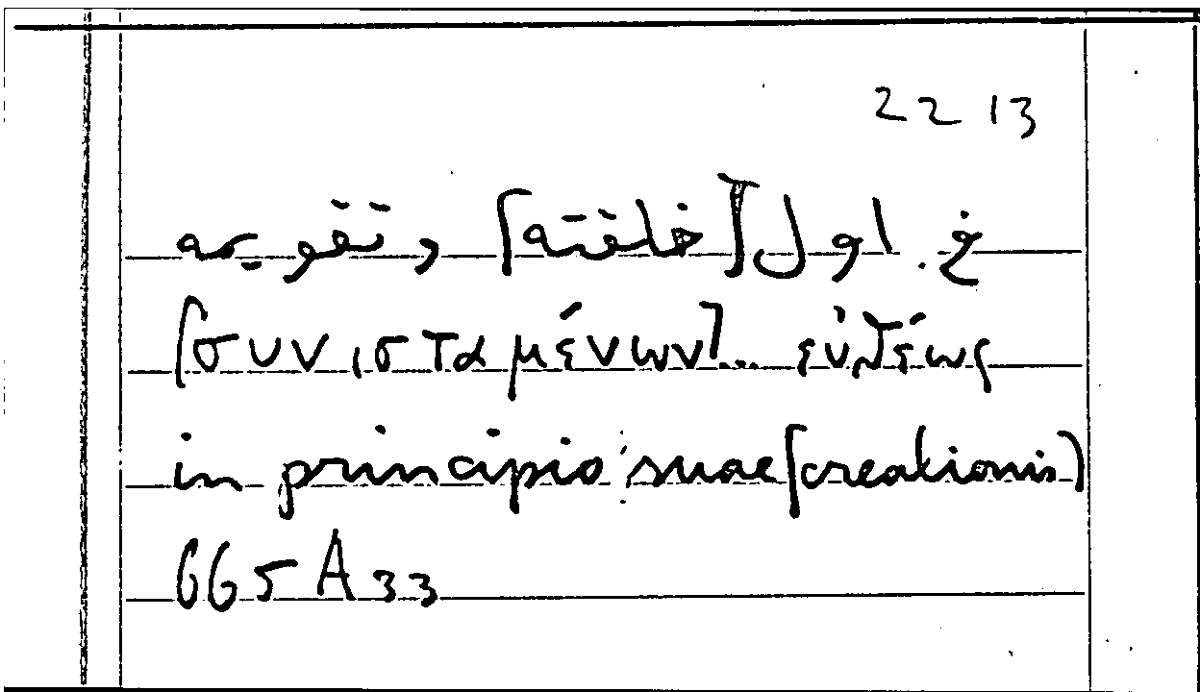 22 13
في اول [خلقته] وتقويمه
[συνισταμένων]... εὐθέως
in principio suae [creationis]
665 A 33